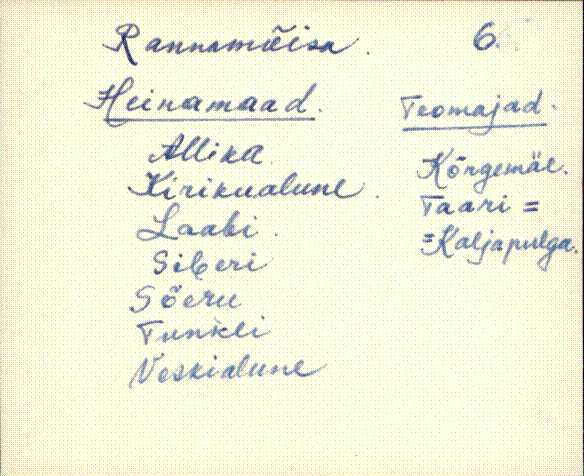 Rannamõisa. 6.
Heinamaad.
Allika
Kirikualune.
Laabi.
Siberi
Sõeru
Tunkli
Veskialune
Teomajad.
Kõrgemäe.
Taari =
=Kaljapulga.